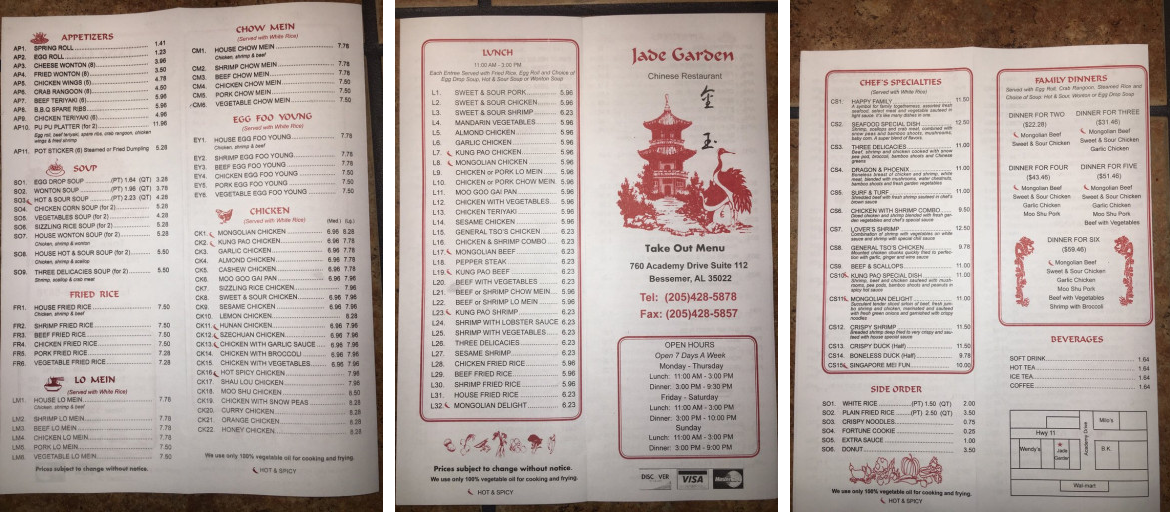 APPETIZERS
AP1. SPRING ROLL 1.41
AP2. EGG ROLL 1.23
AP3. CHEESE WONTON (8) 3.96
AP4. FRIED WONTON (8) 3.50
AP5. CHICKEN WINGS (5) 4.78
AP6. CRAB RANGOON (8) 4.50
AP7. BEEF TERIYAKI (2) 5.96
AP8. B.B.Q SPARE RIBS 5.96
AP9. CHICKEN TERIYAKI (4) 4.96
AP10. PU PU PLATTER (for 2) 11.96
Egg roll, beef teriyaki, spare ribs, crab rangoon, chicken
wings & fried shrimp
AP11. POT STICKER (6) Steamed or Fried Dumpling 5.28
SOUP
SO1. EGG DROP SOUP (PT) 1.64 (QT) 3.28
SO2. WONTON SOUP (PT) 1.96 (QT) 3.78
SO3. HOT & SOUR SOUP (PT) 2.23 (QT) 4.28
SO4. CHICKEN CORN SOUP (for 2) 5.28
SO5. VEGETABLES SOUP (for 2) 4.28
SO6. SIZZLING RICE SOUP (for 2) 5.28
SO7. HOUSE WONTON SOUP (for 2) 5.28
Chicken, shrimp & wonton
SO8. HOUSE HOT & SOUR SOUP (for 2) 5.50
Chicken, shrimp & scallop
SO9. THREE DELICACIES SOUP (for 2) 5.50
Shrimp, scallop & crab meat
FRIED RICE
FR1. HOUSE FRIED RICE 7.50
Chicken, shrimp & beef
FR2. SHRIMP FRIED RICE 7.50
FR3. BEEF FRIED RICE 7.50
FR4. CHICKEN FRIED RICE 7.28
FR5. PORK FRIED RICE 7.28
FR6. VEGETABLE FRIED RICE 7.28
LO MEIN
(Served with White Rice)
LM1. HOUSE LO MEIN 7.78
Chicken, shrimp & beef
LM2. SHRIMP LO MEIN 7.78
LM3. BEEF LO MEIN 7.78
LM4. CHICKEN LO MEIN 7.78
LM5. PORK LO MEIN 7.50
LM6. VEGETABLE LO MEIN 7.50
Prices subject to change without notice.
CHOW MEIN
(Served with White Rice)
CM1. HOUSE CHOW MEIN 7.78
Chicken, shrimp & beef
CM2. SHRIMP CHOW MEIN 7.78
CM3. BEEF CHOW MEIN 7.78
CM4. CHICKEN CHOW MEIN 7.50
CM5. PORK CHOW MEIN 7.50
CM6. VEGETABLE CHOW MEIN 7.50
EGG FOO YOUNG
(Served with White Rice)
EY1. HOUSE EGG FOO YOUNG 7.78
Chicken, shrimp & beef
EY2. SHRIMP EGG FOO YOUNG 7.78
EY3. BEEF EGG FOO YOUNG 7.78
EY4. CHICKEN EGG FOO YOUNG 7.50
EY5. PORK EGG FOO YOUNG 7.50
EY6. VEGETABLE EGG FOO YOUNG 7.50
CHICKEN
(Served with White Rice) (Med.) (Lg.)
CK1. MONGOLIAN CHICKEN 6.96 8.28
CK2. KUNG PAO CHICKEN 6.96 7.78
CK3. GARLIC CHICKEN 6.96 7.78
CK4. ALMOND CHICKEN 6.96 7.78
CK5. CASHEW CHICKEN 6.96 7.78
CK6. MOO GOO GAI PAN 6.96 7.78
CK7. SIZZLING RICE CHICKEN
CK8. SWEET & SOUR CHICKEN
CK9. SESAME CHICKEN
CK10. LEMON CHICKEN
CK11. HUNAN CHICKEN 6.96 7.96
CK12. SZECHUAN CHICKEN 6.96 7.96
CK13. CHICKEN WITH GARLIC SAUCE 6.96 7.96
CK14. CHICKEN WITH BROCCOLI 6.96 7.96
CK15. CHICKEN WITH VEGETABLES 6.96 7.96
CK16. HOT SPICY CHICKEN 7.96
CK17. SHAU LOU CHICKEN 7.96
CK18. MOO SHU CHICKEN
CK19. CHICKEN WITH SNOW PEAS 8.28
CK20. CURRY CHICKEN 8.28
CK21. ORANGE CHICKEN 8.28
CK22. HONEY CHICKEN 8.28
We use only 100% vegetable oil for cooking and frying.
HOT & SPICY
LUNCH
11:00 AM - 3:00 PM
Each Entree Served with Fried Rice, Egg Roll and Choice of
Egg Drop Soup, Hot & Sour Soup or Wonton Soup
L1. SWEET & SOUR PORK 5.96
L2. SWEET & SOUR CHICKEN 5.96
L3. SWEET & SOUR SHRIMP 6.23
L4. MANDARIN VEGETABLES 5.96
L5. ALMOND CHICKEN 5.96
L6. GARLIC CHICKEN 5.96
L7. KUNG PAO CHICKEN 5.96
L8. MONGOLIAN CHICKEN 5.96
L9. CHICKEN or PORK LO MEIN 5.96
L10. CHICKEN or PORK CHOW MEIN 5.96
L11. MOO GOO GAI PAN 5.96
L12. CHICKEN WITH VEGETABLES 5.96
L13. CHICKEN TERIYAKI 5.96
L14. SESAME CHICKEN 5.96
L15. GENERAL TSO'S CHICKEN 5.96
L16. CHICKEN & SHRIMP COMBO 6.23
L17. MONGOLIAN BEEF 6.23
L18. PEPPER STEAK 6.23
L19. KUNG PAO BEEF 6.23
L20. BEEF WITH VEGETABLES 6.23
L21. BEEF or SHRIMP CHOW MEIN 6.23
L22. BEEF or SHRIMP LO MEIN 6.23
L23. KUNG PAO SHRIMP 6.23
L24. SHRIMP WITH LOBSTER SAUCE 6.23
L25. SHRIMP WITH VEGETABLES 6.23
L26. THREE DELICACIES 6.23
L27. SESAME SHRIMP 6.23
L28. CHICKEN FRIED RICE 5.96
L29. BEEF FRIED RICE 5.96
L30. SHRIMP FRIED RICE 5.96
L31. HOUSE FRIED RICE 6.23
L32. MONGOLIAN DELIGHT 6.23
Prices subject to change without notice.
We use only 100% vegetable oil for cooking and frying.
HOT & SPICY
Jade Garden
Chinese Restaurant
金
玉
Take Out Menu
760 Academy Drive Suite 112
Bessemer, AL 35022
Tel: (205)428-5878
Fax: (205)428-5857
OPEN HOURS
Open 7 Days A Week
Monday - Thursday
Lunch: 11:00 AM - 3:00 PM
Dinner: 3:00 PM - 9:30 PM
Friday - Saturday
Lunch: 11:00 AM - 3:00 PM
Dinner: 3:00 PM - 10:00 PM
Sunday
Lunch: 11:00 AM - 3:00 PM
Dinner: 3:00 PM - 9:00 PM
DISC VER VISA MasterCard
CHEF'S SPECIALTIES
(Served with White Rice)
CS1. HAPPY FAMILY 11.50
CS2. SEAFOOD SPECIAL DISH 12.50
CS3. THREE DELICACIES 11.00
CS4. DRAGON & PHOENIX 11.00
CS5. SURF & TURF 11.00
CS6. CHICKEN WITH SHRIMP COMBO 9.50
CS7. LOVER'S SHRIMP 12.50
CS8. GENERAL TSO'S CHICKEN 9.78
CS9. BEEF & SCALLOPS 11.00
CS10. KUNG PAO SPECIAL DISH 11.00
CS11. MONGOLIAN DELIGHT 11.00
CS12. CRISPY SHRIMP 11.50
CS13. CRISPY DUCK (Half) 11.50
CS14. BONELESS DUCK (Half) 9.78
CS15. SINGAPORE MEI FUN 10.00
SIDE ORDER
SO1. WHITE RICE (PT) 1.50 (QT) 2.00
SO2. PLAIN FRIED RICE (PT) 2.50 (QT) 3.50
SO3. CRISPY NOODLES 0.75
SO4. FORTUNE COOKIE 0.25
SO5. EXTRA SAUCE 1.00
SO6. DONUT 3.50
We use only 100% vegetable oil for cooking and frying.
HOT & SPICY
FAMILY DINNERS
Served with Egg Roll, Crab Rangoon, Steamed Rice and
Choice of Soup: Hot & Sour, Wonton or Egg Drop Soup
DINNER FOR TWO
($22.28)
Mongolian Beef
Sweet & Sour Chicken
DINNER FOR THREE
($31.46)
Mongolian Beef
Sweet & Sour Chicken
Garlic Chicken
DINNER FOR FOUR
($43.46)
Mongolian Beef
Sweet & Sour Chicken
Garlic Chicken
Moo Shu Pork
DINNER FOR FIVE
($51.46)
Mongolian Beef
Sweet & Sour Chicken
Garlic Chicken
Moo Shu Pork
Beef with Vegetables
DINNER FOR SIX
($59.46)
Mongolian Beef
Sweet & Sour Chicken
Garlic Chicken
Moo Shu Pork
Beef with Vegetables
Shrimp with Broccoli
BEVERAGES
SOFT DRINK 1.64
HOT TEA 1.64
ICE TEA 1.64
COFFEE 1.64
Hwy 11
Academy Drive
Milo's
Wendy's
Jade
Garden
B.K
Wal-mart